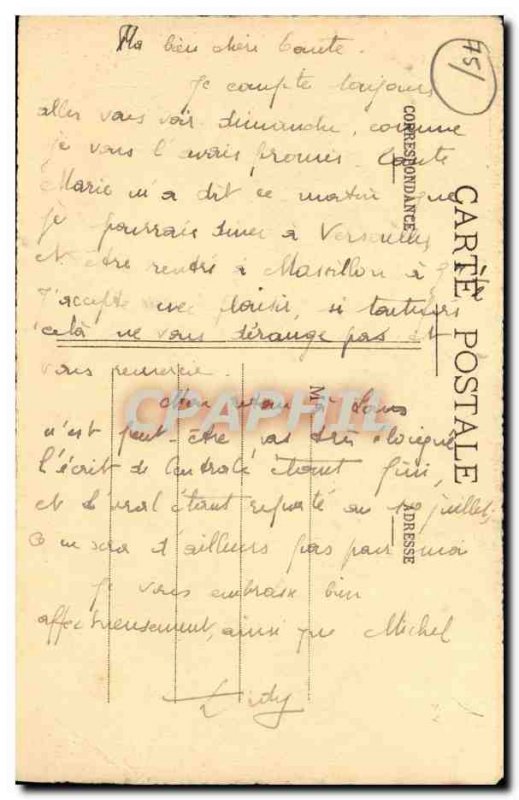 Ma bien chère tante.
75/
Je compte toujours
aller vous voir dimanche, comme
je vous l'avais promis. tante
Marie m'a dit ce matin que
je pourrais diner à Versailles
et être rentré à Massillon à 9h
J'accepte avec plaisir, si toutefois
cela ne vous dérange pas et
vous remercie.
Mon retour à
n'est peut-être pas très éloigné
l'écrit de Centrale étant fini,
et l'oral étant reporté au 12 juillet;
ce ne sera d'ailleurs pas pour moi
Je vous embrasse bien
affectueusement, ainsi que Michel
CORRESPONDANCE
CARTE POSTALE
ADRESSE
M
CPAPHIL